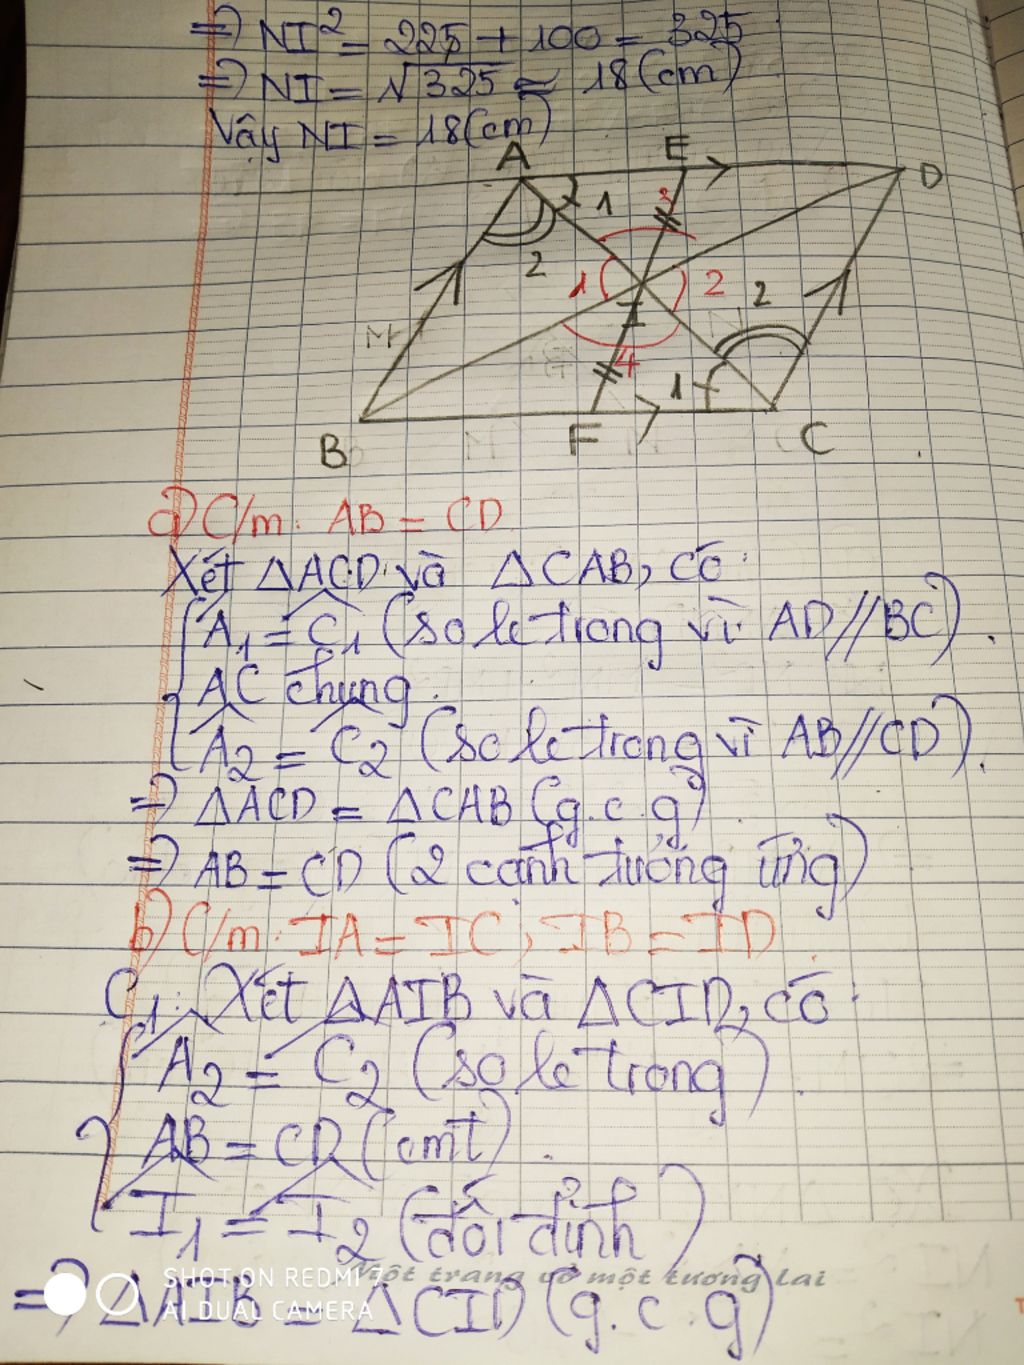 => NI² = 225 + 100 = 325
=> NI = √325 ≈ 18 (cm)
Vậy NI = 18 (cm)
A E D
2 1 3
2 1 2 2
I
4 1
B F C
a) C/m: AB = CD
Xét ΔACD và ΔCAB, có:
Â₁ = Ĉ₁ (so le trong vì AD//BC).
AC chung.
Â₂ = Ĉ₂ (so le trong vì AB//CD).
=> ΔACD = ΔCAB (g.c.g)
=> AB = CD (2 cạnh tương ứng)
b) C/m: IA = IC, IB = ID.
C₁: Xét ΔAIB và ΔCID, có:
Â₂ = Ĉ₂ (so le trong).
AB = CD (cmt).
Î₁ = Î₂ (đối đỉnh)
Một trang vở một tương lai
SHOT ON REDMI 7
AI DUAL CAMERA
=> ΔAIB = ΔCID (g.c.g)